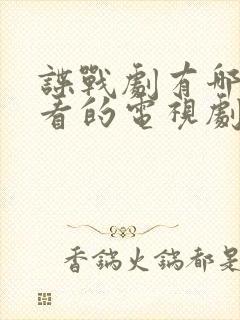 諜戰劇有哪
看的電視劇
香鍋火鍋都是